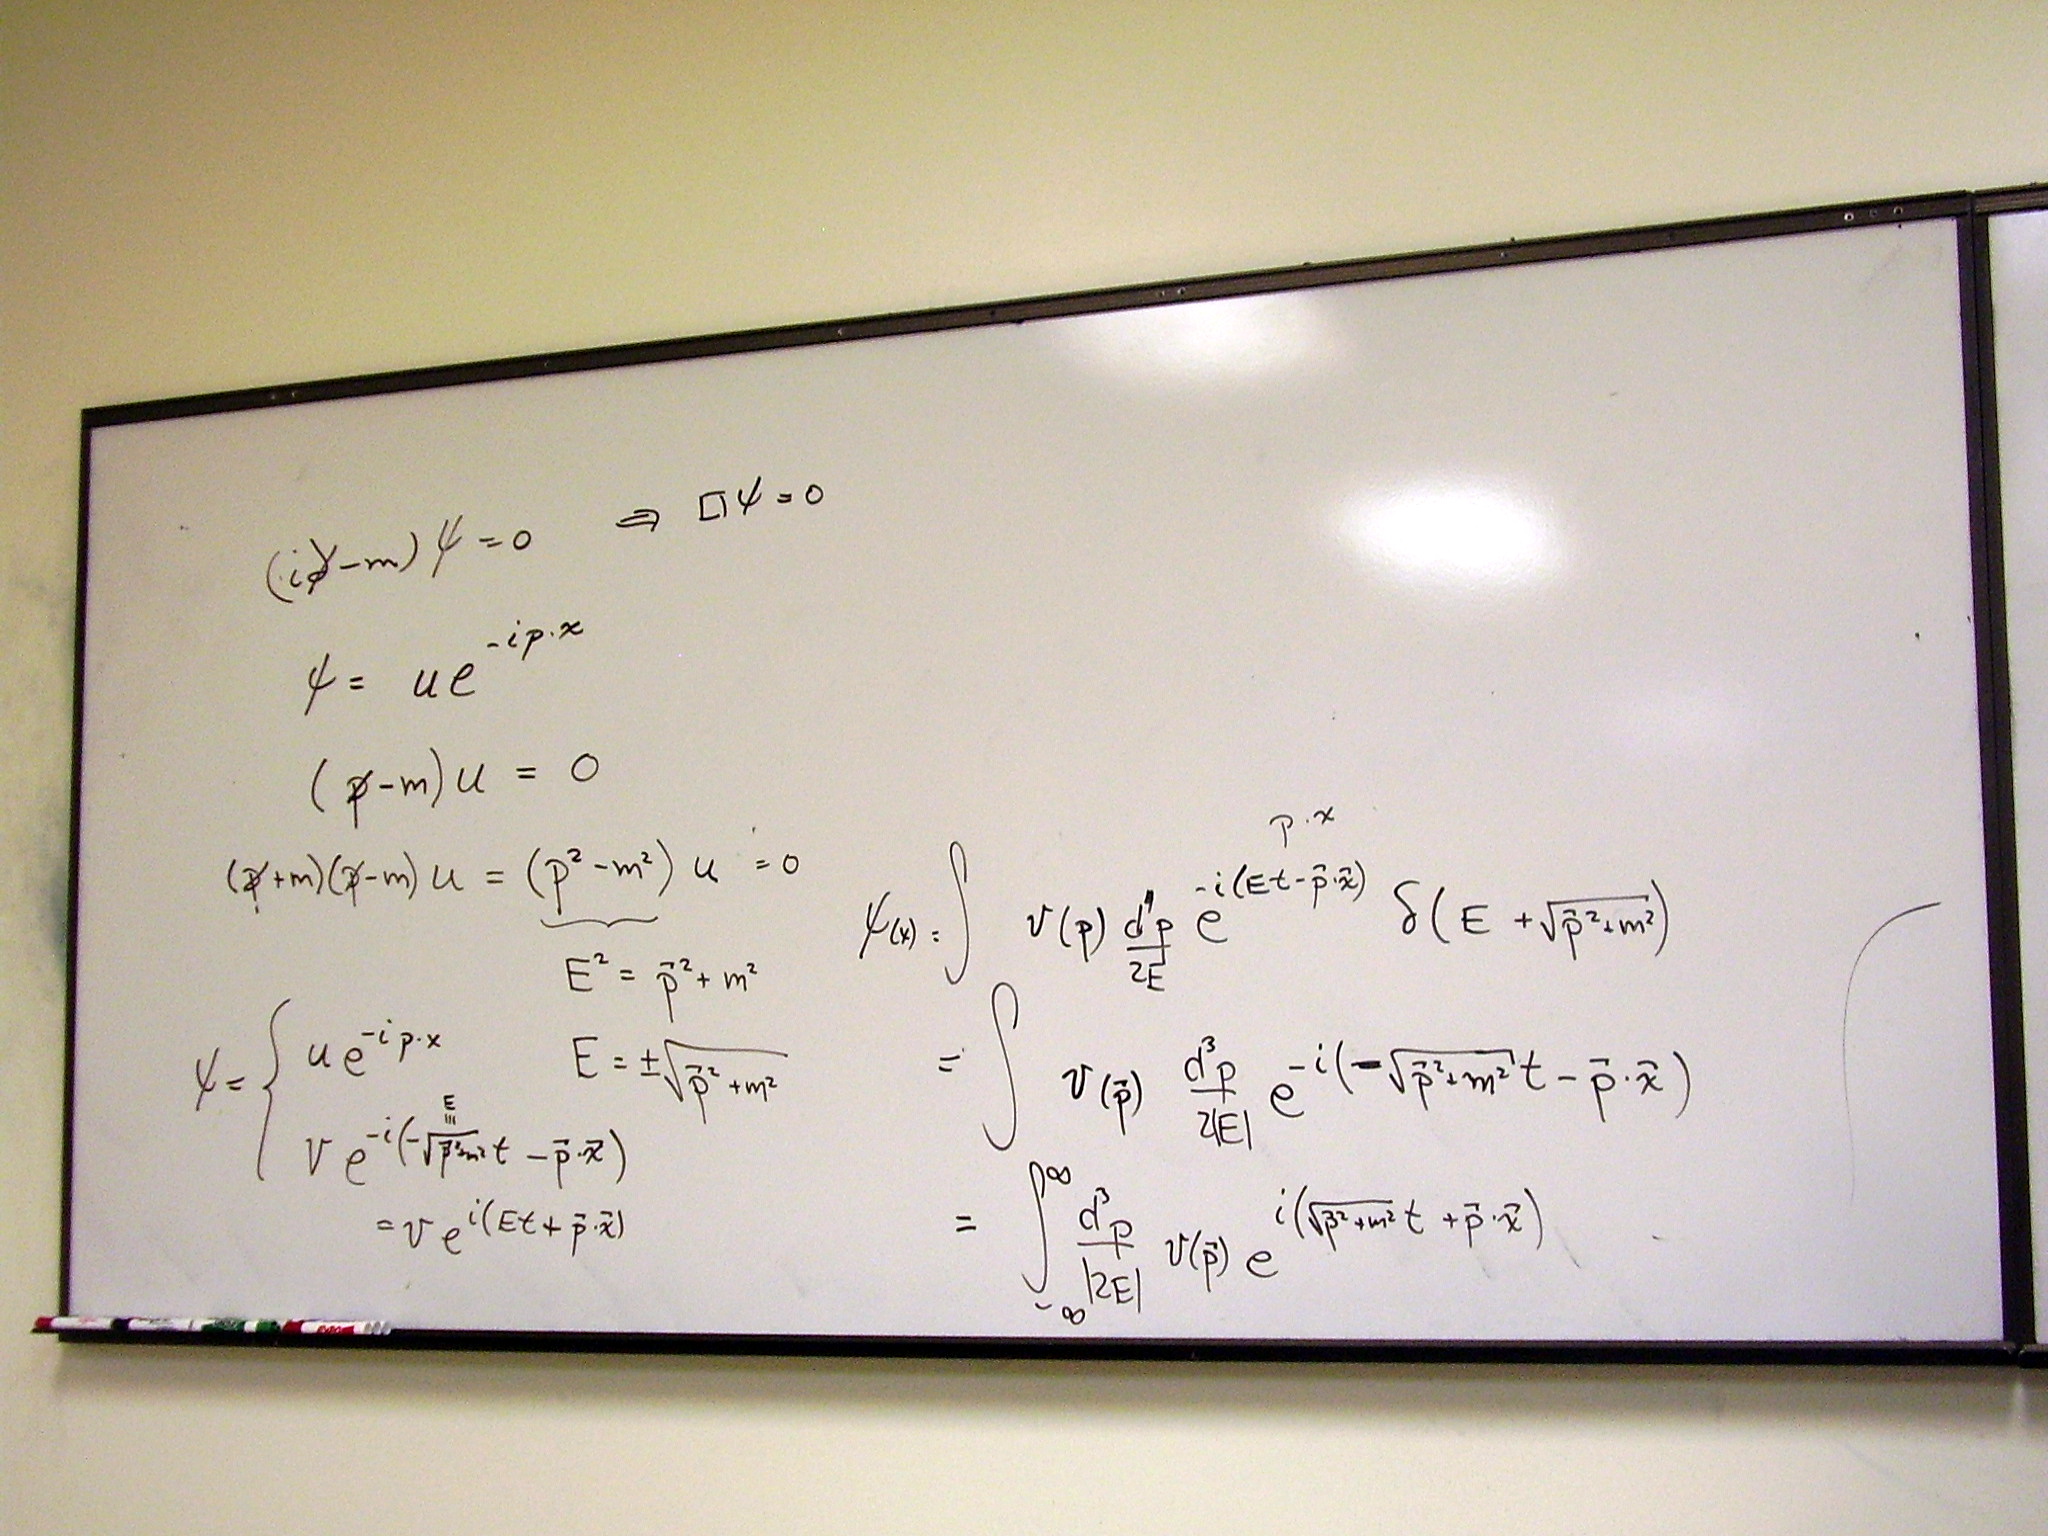 (i∂̸ - m) ψ = 0 ⇒ □ψ = 0
ψ = u e^{-ip·x}
(p̸ - m) u = 0
(p̸ + m)(p̸ - m) u = (p² - m²) u = 0
E² = p⃗² + m²
E = ±√(p⃗² + m²)
ψ = { u e^{-ip·x}
E
≡
v e^{-i(-√(p⃗²+m²) t - p⃗·x⃗)}
= v e^{i(Et + p⃗·x⃗)}
p·x
ψ(x) = ∫ v(p) d⁴p/2E e^{-i(Et - p⃗·x⃗)} δ(E + √(p⃗² + m²))
= ∫ v(p⃗) d³p/2|E| e^{-i(-√(p⃗²+m²) t - p⃗·x⃗)}
= ∫_{-∞}^{∞} d³p/|2E| v(p⃗) e^{i(√(p⃗²+m²) t + p⃗·x⃗)}